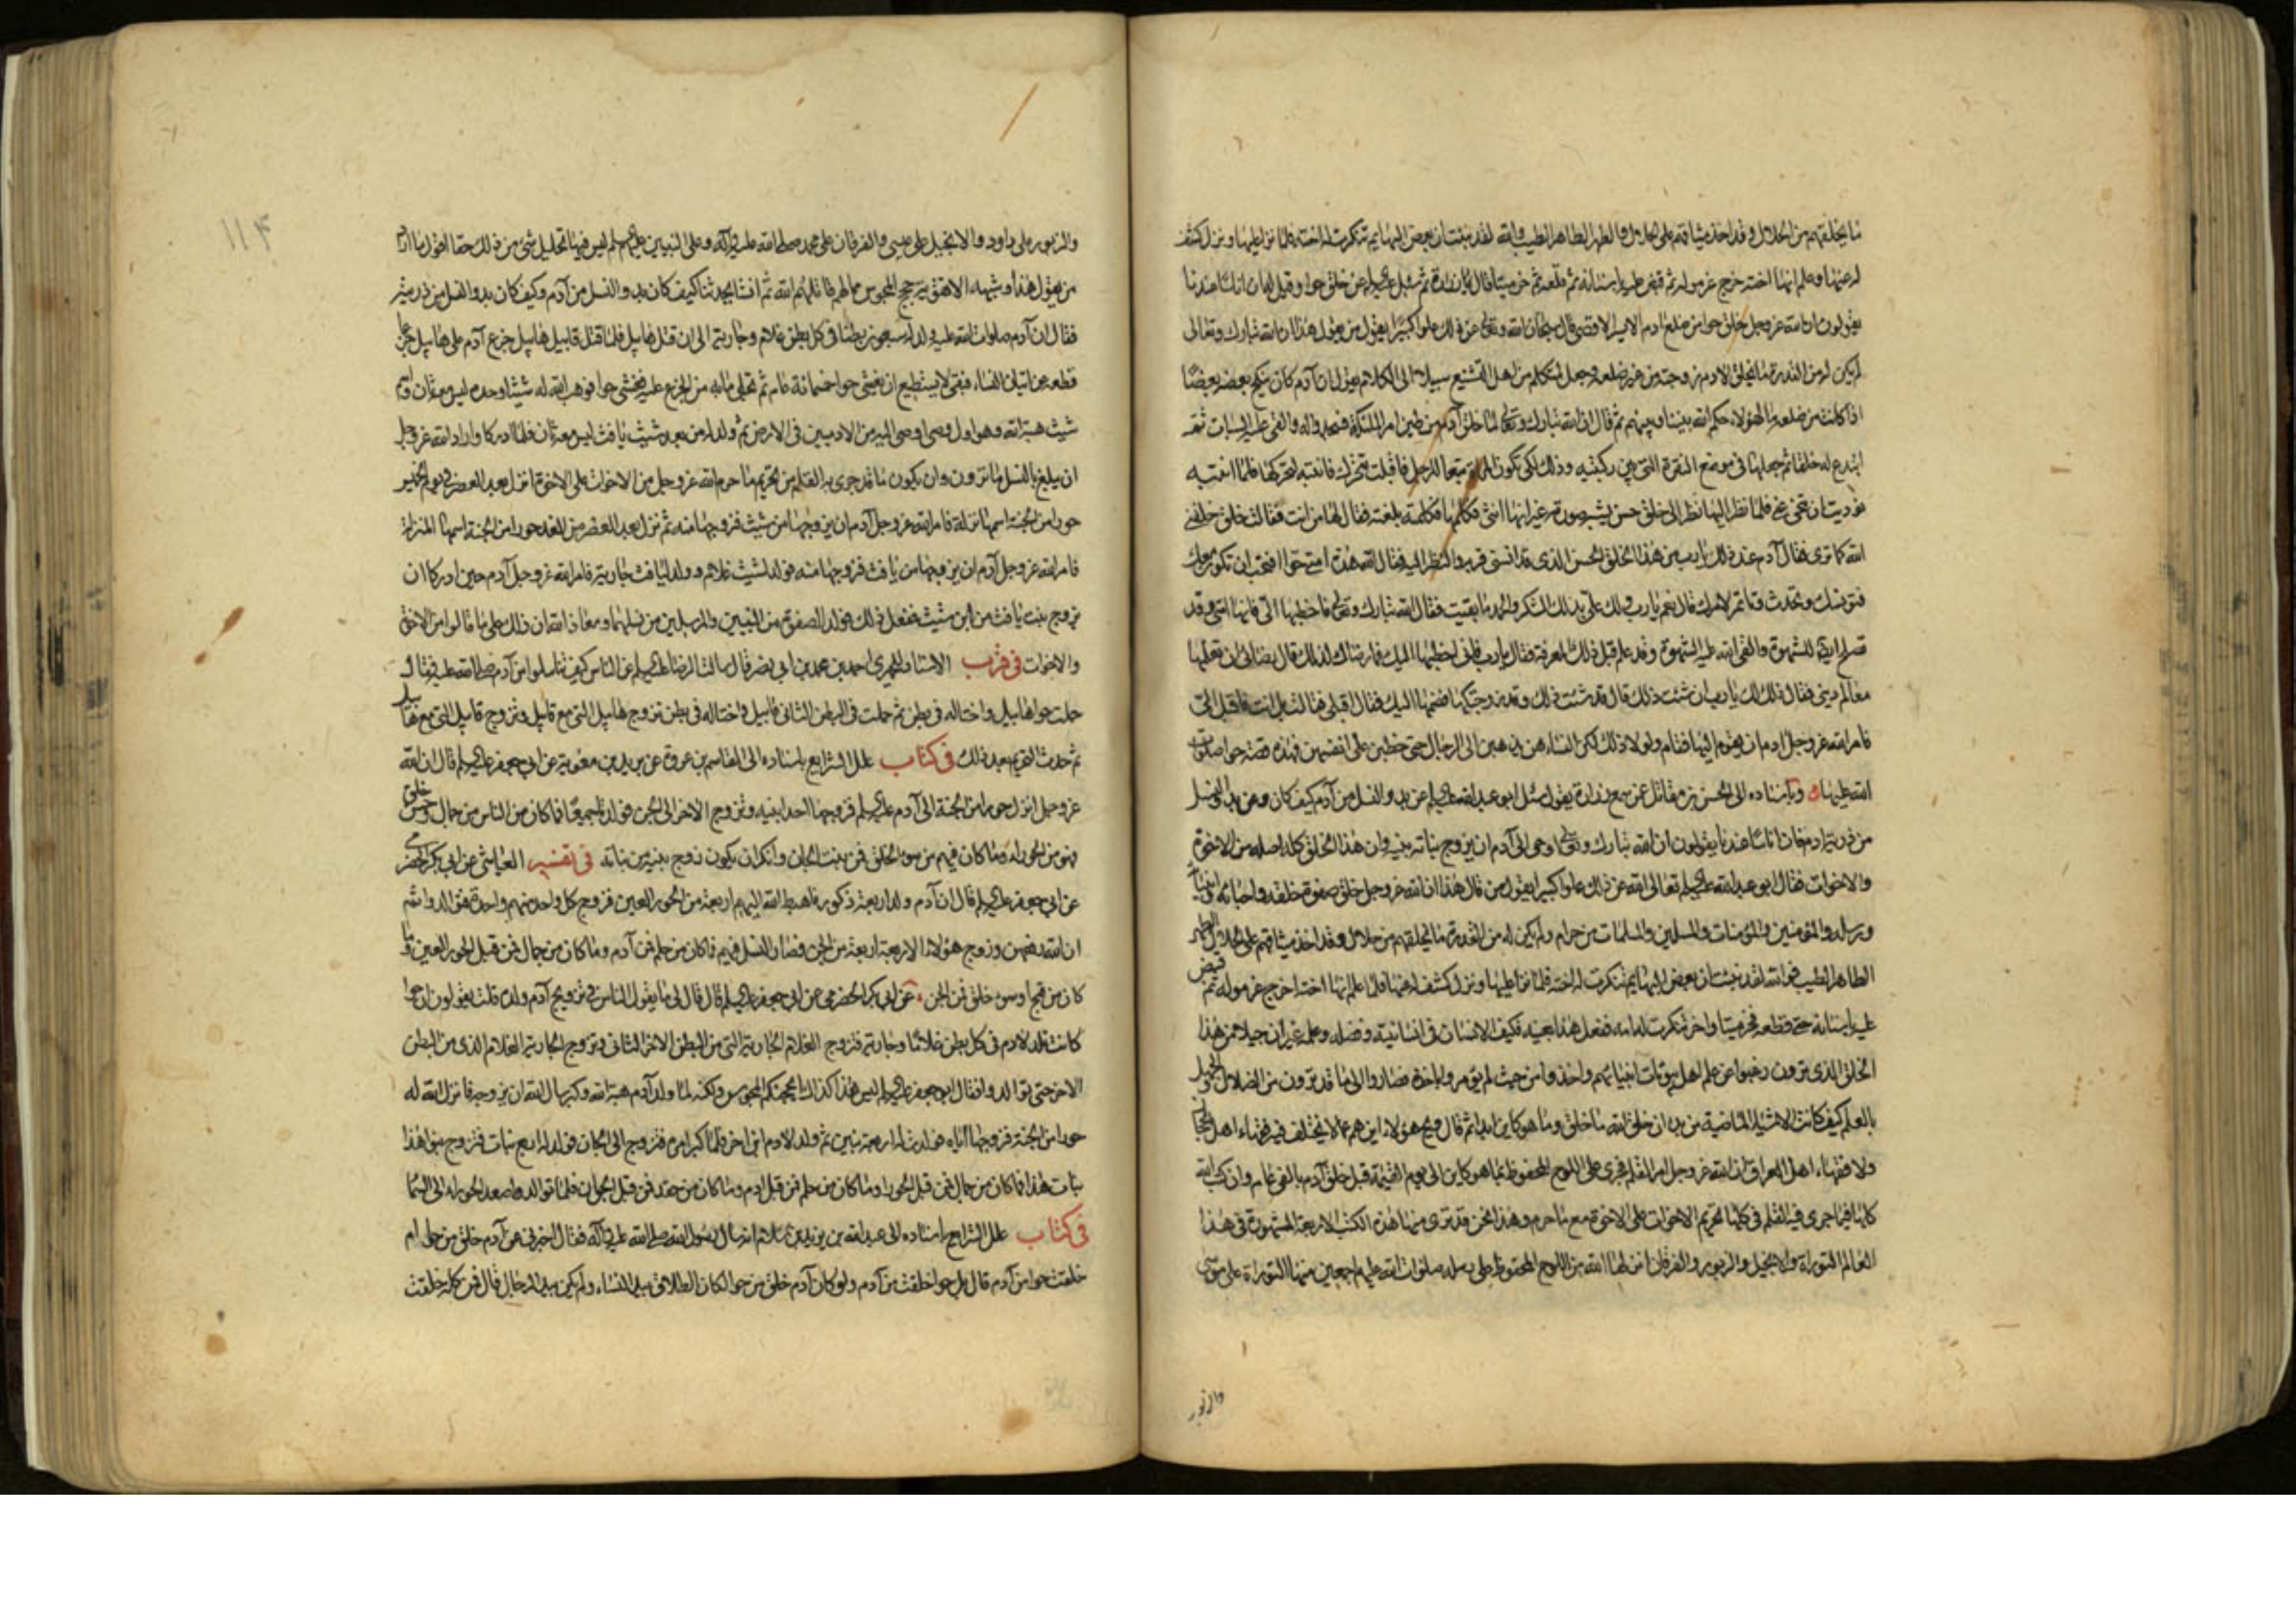 ما يخلقهم من الحلال وقد اخذ ميثاقهم على الحلال والطهر الطاهر الطيب والله لقد نبئت ان بعض البهايم تنكرت له اخته فلما نزا عليها ونزل كشف
له عنها وعلم انها اخته خرج غرموله ثم قبض عليه باسنانه ثم قلعه ثم خر ميتا قال زرارة ثم سئل عليه السلام عن خلق حوا وقيل له ان اناسا عندنا
يقولون ان الله عز وجل خلق حوا من ضلع ادم الايسر الاقصى قال سبحان الله وتعالى عن ذلك علوا كبيرا يقول من يقول هذا ان الله تبارك وتعالى
لم يكن له من القدرة ما يخلق لادم زوجته من غير ضلعه وجعل لمتكلم من اهل التشنيع سبيلا الى الكلام يقول ان آدم كان ينكح بعضه بعضا
اذا كانت من ضلعه ما لهؤلاء حكم الله بيننا وبينهم ثم قال ان الله تبارك وتعالى لما خلق آدم من طين امر الملئكة فسجدوا له والقى عليه السبات ثم
ابتدع له خلقا ثم جعلها في موضع النقرة التي بين ركبتيه وذلك لكي تكون المراة تبعا للرجل فاقبلت تتحرك فانتبه لتحركها فلما انتبه
نوديت ان تنحي عنه فلما نظر اليها نظر الى خلق حسن يشبه صورته غير انها انثى فكلمها فكلمته بلغته فقال لها من انت فقالت خلق خلقني
الله كما ترى فقال آدم عند ذلك يا رب من هذا الخلق الحسن الذي قد انسني قربه والنظر اليه فقال الله هذه امتي حوا افتحب ان تكون معك
فتونسك وتحدثك وتأتمر لامرك قال نعم يا رب ولك علي بذلك الشكر والحمد ما بقيت فقال الله تبارك وتعالى فاخطبها الي فانها امتي وقد
تصلح ايضا للشهوة والقى الله عليه الشهوة وقد علم قبل ذلك المعرفة فقال يا رب فاني اخطبها اليك فما رضاك لذلك قال رضائي ان تعلمها
معالم ديني فقال ذلك لك يا رب ان شئت ذلك قال قد شئت ذلك وقد زوجتكها فضمها اليك فقال اقبلي فقالت بل انت فاقبل الي
فامر الله عز وجل ادم ان يقوم اليها فقام ولولا ذلك لكن النساء هن يذهبن الى الرجال حتى خطبن على انفسهن فهذه قصة حوا صلوات
الله عليها وباسناده الى الحسن بن مقاتل عمن سمع زرارة يقول سئل ابو عبد الله عليه السلام عن بدو النسل من آدم كيف كان وعن بدو النسل
من ذرية ادم فان اناسا عندنا يقولون ان الله تبارك وتعالى اوحى الى آدم ان يزوج بناته بنيه وان هذا الخلق كله اصله من الاخوة
والاخوات فقال ابو عبد الله عليه السلام تعالى الله عن ذلك علوا كبيرا يقول من قال هذا ان الله عز وجل خلق صفوة خلقه واحبائه وانبيائه
ورسله والمؤمنين والمؤمنات والمسلمين والمسلمات من حرام ولم يكن له من القدرة ما يخلقهم من حلال وقد اخذ ميثاقهم على الحلال الطهر
الطاهر الطيب فوالله لقد نبئت ان بعض البهايم تنكرت له اخته فلما نزا عليها ونزل كشف له عنها فلما علم انها اخته اخرج غرموله ثم قبض
عليه باسنانه حتى قطعه فخر ميتا واخر تنكرت له امه ففعل هذا بعينه فكيف الانسان في انسانيته وفضله وعلمه غير ان جيلا من هذا
الخلق الذي ترون رغبوا عن علم اهل بيوتات انبيائهم واخذوا من حيث لم يؤمروا باخذه فصاروا الى ما قد ترون من الضلال والجهل
بالعلم كيف كانت الاشياء الماضية من بدو ان خلق الله ما خلق وما هو كاين ابدا ثم قال ويح هؤلاء اين هم عما لا يختلف فيه فقهاء اهل الحجاز
ولا فقهاء اهل العراق ان الله عز وجل امر القلم فجرى على اللوح المحفوظ بما هو كاين الى يوم القيمة قبل خلق آدم بالفي عام وان كتب الله
كلها فيما جرى فيه القلم في كلها تحريم الاخوات على الاخوة مع ما حرم وهذا نحن قد نرى منها هذه الكتب الاربعة المشهورة في هذا
العالم التوراة والانجيل والزبور والفرقان انزلها الله من اللوح المحفوظ على رسله صلوات الله عليهم اجمعين منها التوراة على موسى
والزبور
١١۴
والزبور على داود والانجيل على عيسى والفرقان على محمد صلى الله عليه وآله وعلى النبيين عليهم السلم ليس فيها تحليل شئ من ذلك حقا اقول ما اراد
من يقول هذا وشبهه الا تقوية حجج المجوس فما لهم قاتلهم الله ثم انشا يحدثنا كيف كان بدو النسل من آدم وكيف كان بدو النسل من ذريته
فقال ان آدم صلوات الله عليه ولد له سبعون بطنا في كل بطن غلام وجارية الى ان قتل هابيل فلما قتل قابيل هابيل جزع آدم على هابيل جزعا
قطعه عن اتيان النساء فبقى لا يستطيع ان يغشى حوا خمسمائة عام ثم تجلى ما به من الجزع عليه فغشى حوا فوهب الله له شيثا وحده ليس معه ثان واسم
شيث هبة الله وهو اول وصي اوصي اليه من الادميين في الارض ثم ولد له من بعد شيث يافث ليس معه ثان فلما ادركا واراد الله عز وجل
ان يبلغ بالنسل ما ترون وان يكون ما قد جرى به القلم من تحريم ما حرم الله عز وجل من الاخوات على الاخوة انزل بعد العصر في يوم الخميس
حورا من الجنة اسمها نزلة فامر الله عز وجل آدم ان يزوجها من شيث فزوجها منه ثم نزل بعد العصر من الغد حورا من الجنة اسمها المنزلة
فامر الله عز وجل آدم ان يزوجها من يافث فزوجها منه فولد لشيث غلام وولد ليافث جارية فامر الله عز وجل آدم حين ادركا ان
يزوج بنت يافث من ابن شيث ففعل ذلك فولد الصفوة من النبيين والمرسلين من نسلهما ومعاذ الله ان ذلك على ما قالوا من الاخوة
والاخوات في قرب الاسناد للحميري احمد بن محمد بن ابي نصر قال سالت الرضا عليه السلام عن الناس كيف تناسلوا من آدم صلى الله عليه فقال
حملت حوا هابيل واختا له في بطن ثم حملت في البطن الثاني قابيل واختا له في بطن تزوج هابيل التي مع قابيل وتزوج قابيل التي مع هابيل
ثم حدث التحريم بعد ذلك في كتاب علل الشرايع باسناده الى القاسم بن عروة عن بريد بن معوية عن ابي جعفر عليه السلام قال ان الله
عز وجل انزل حورا من الجنة الى آدم عليه السلام فزوجها احد ابنيه وتزوج الاخر الى الجن فولدتا جميعا فما كان من الناس من جمال وحسن خلق
فهو من الحوراء وما كان فيهم من سوء الخلق فمن بنت الجان وانكر ان يكون زوج بنيه من بناته في تفسير العياشي عن ابي بكر الحضرمي
عن ابي جعفر عليه السلام قال ان آدم ولد اربعة ذكور فاهبط الله اليهم اربعة من الحور العين فزوج كل واحد منهم واحدة فتوالدوا ثم
ان الله رفعهن وزوج هؤلاء الاربعة اربعة من الجن فصار النسل فيهم فما كان من حلم فمن آدم وما كان من جمال فمن قبل الحور العين وما
كان من قبح او سوء خلق فمن الجن عن ابي بكر الحضرمي عن ابي جعفر عليه السلام قال قال لي ما يقول الناس في تزويج آدم وولده قلت يقولون ان حوا
كانت تلد لادم في كل بطن غلاما وجارية فتزوج الغلام الجارية التي من البطن الاخر الثاني وتزوج الجارية الغلام الذي من البطن
الاخر حتى توالدوا فقال ابو جعفر عليه السلام ليس هذا كذاك يحجكم المجوس ولكنه لما ولد آدم هبة الله وكبر سال الله ان يزوجه فانزل الله له
حورا من الجنة فزوجها اياه فولدت له اربعة بنين ثم ولد لادم ابن اخر فلما كبر امره فتزوج الى الجان فولد له اربع بنات فتزوج بنو هذا
بنات هذا فما كان من جمال فمن قبل الحورا وما كان من حلم فمن قبل ادم وما كان من حقد فمن قبل الجان فلما توالدوا صعد الحوراء الى السما
في كتاب علل الشرايع باسناده الى عبد الله بن يزيد بن سلام انه سال رسول الله صلى الله عليه وآله فقال اخبرني عن آدم خلق من حوا ام
خلقت حوا من آدم قال بل حوا خلقت من آدم ولو كان آدم خلق من حوا لكان الطلاق بيد النساء ولم يكن بيد الرجال قال فمن كله خلقت